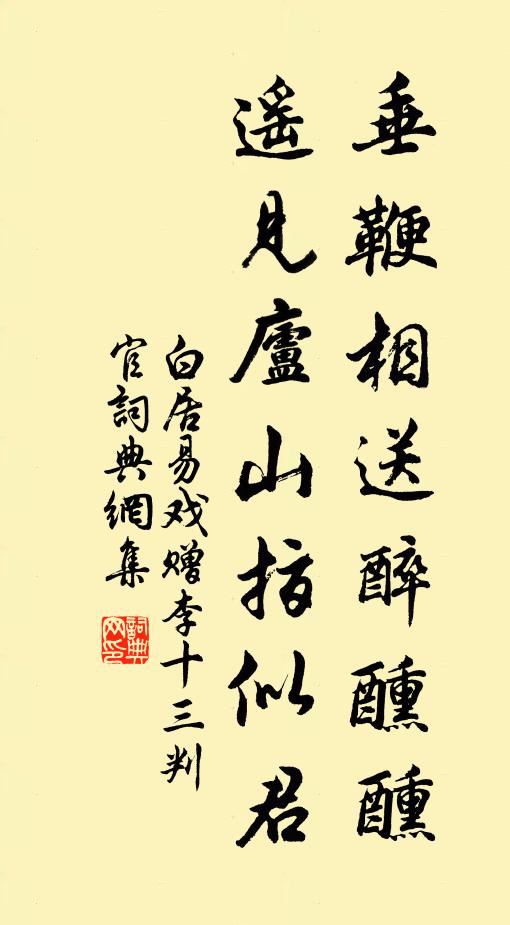 垂鞭相送醉醺醺
遥見廬山指似君
白居易戏赠李十三判
官詞典網集
詞典网印